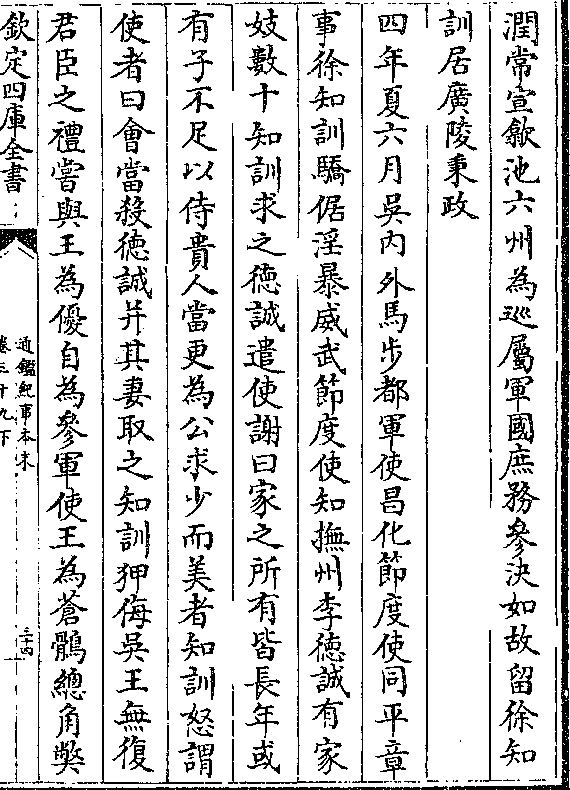 潤常宣歙池六州為巡屬軍國庶務參決如故留徐知
訓居廣陵秉政
四年夏六月吳内外馬步都軍使昌化節度使同平章
事徐知訓驕倨淫暴威武節度使知撫州李德誠有家
妓數十知訓求之德誠遣使謝曰家之所有皆長年或
有子不足以侍貴人當更為公求少而美者知訓怒謂
使者曰會當殺德誠并其妻取之知訓狎侮吳王無復
君臣之禮嘗與王為優自為參軍使王為蒼鶻總角弊
欽定四庫全書
通鑑紀事本末
卷三十九下
三十四